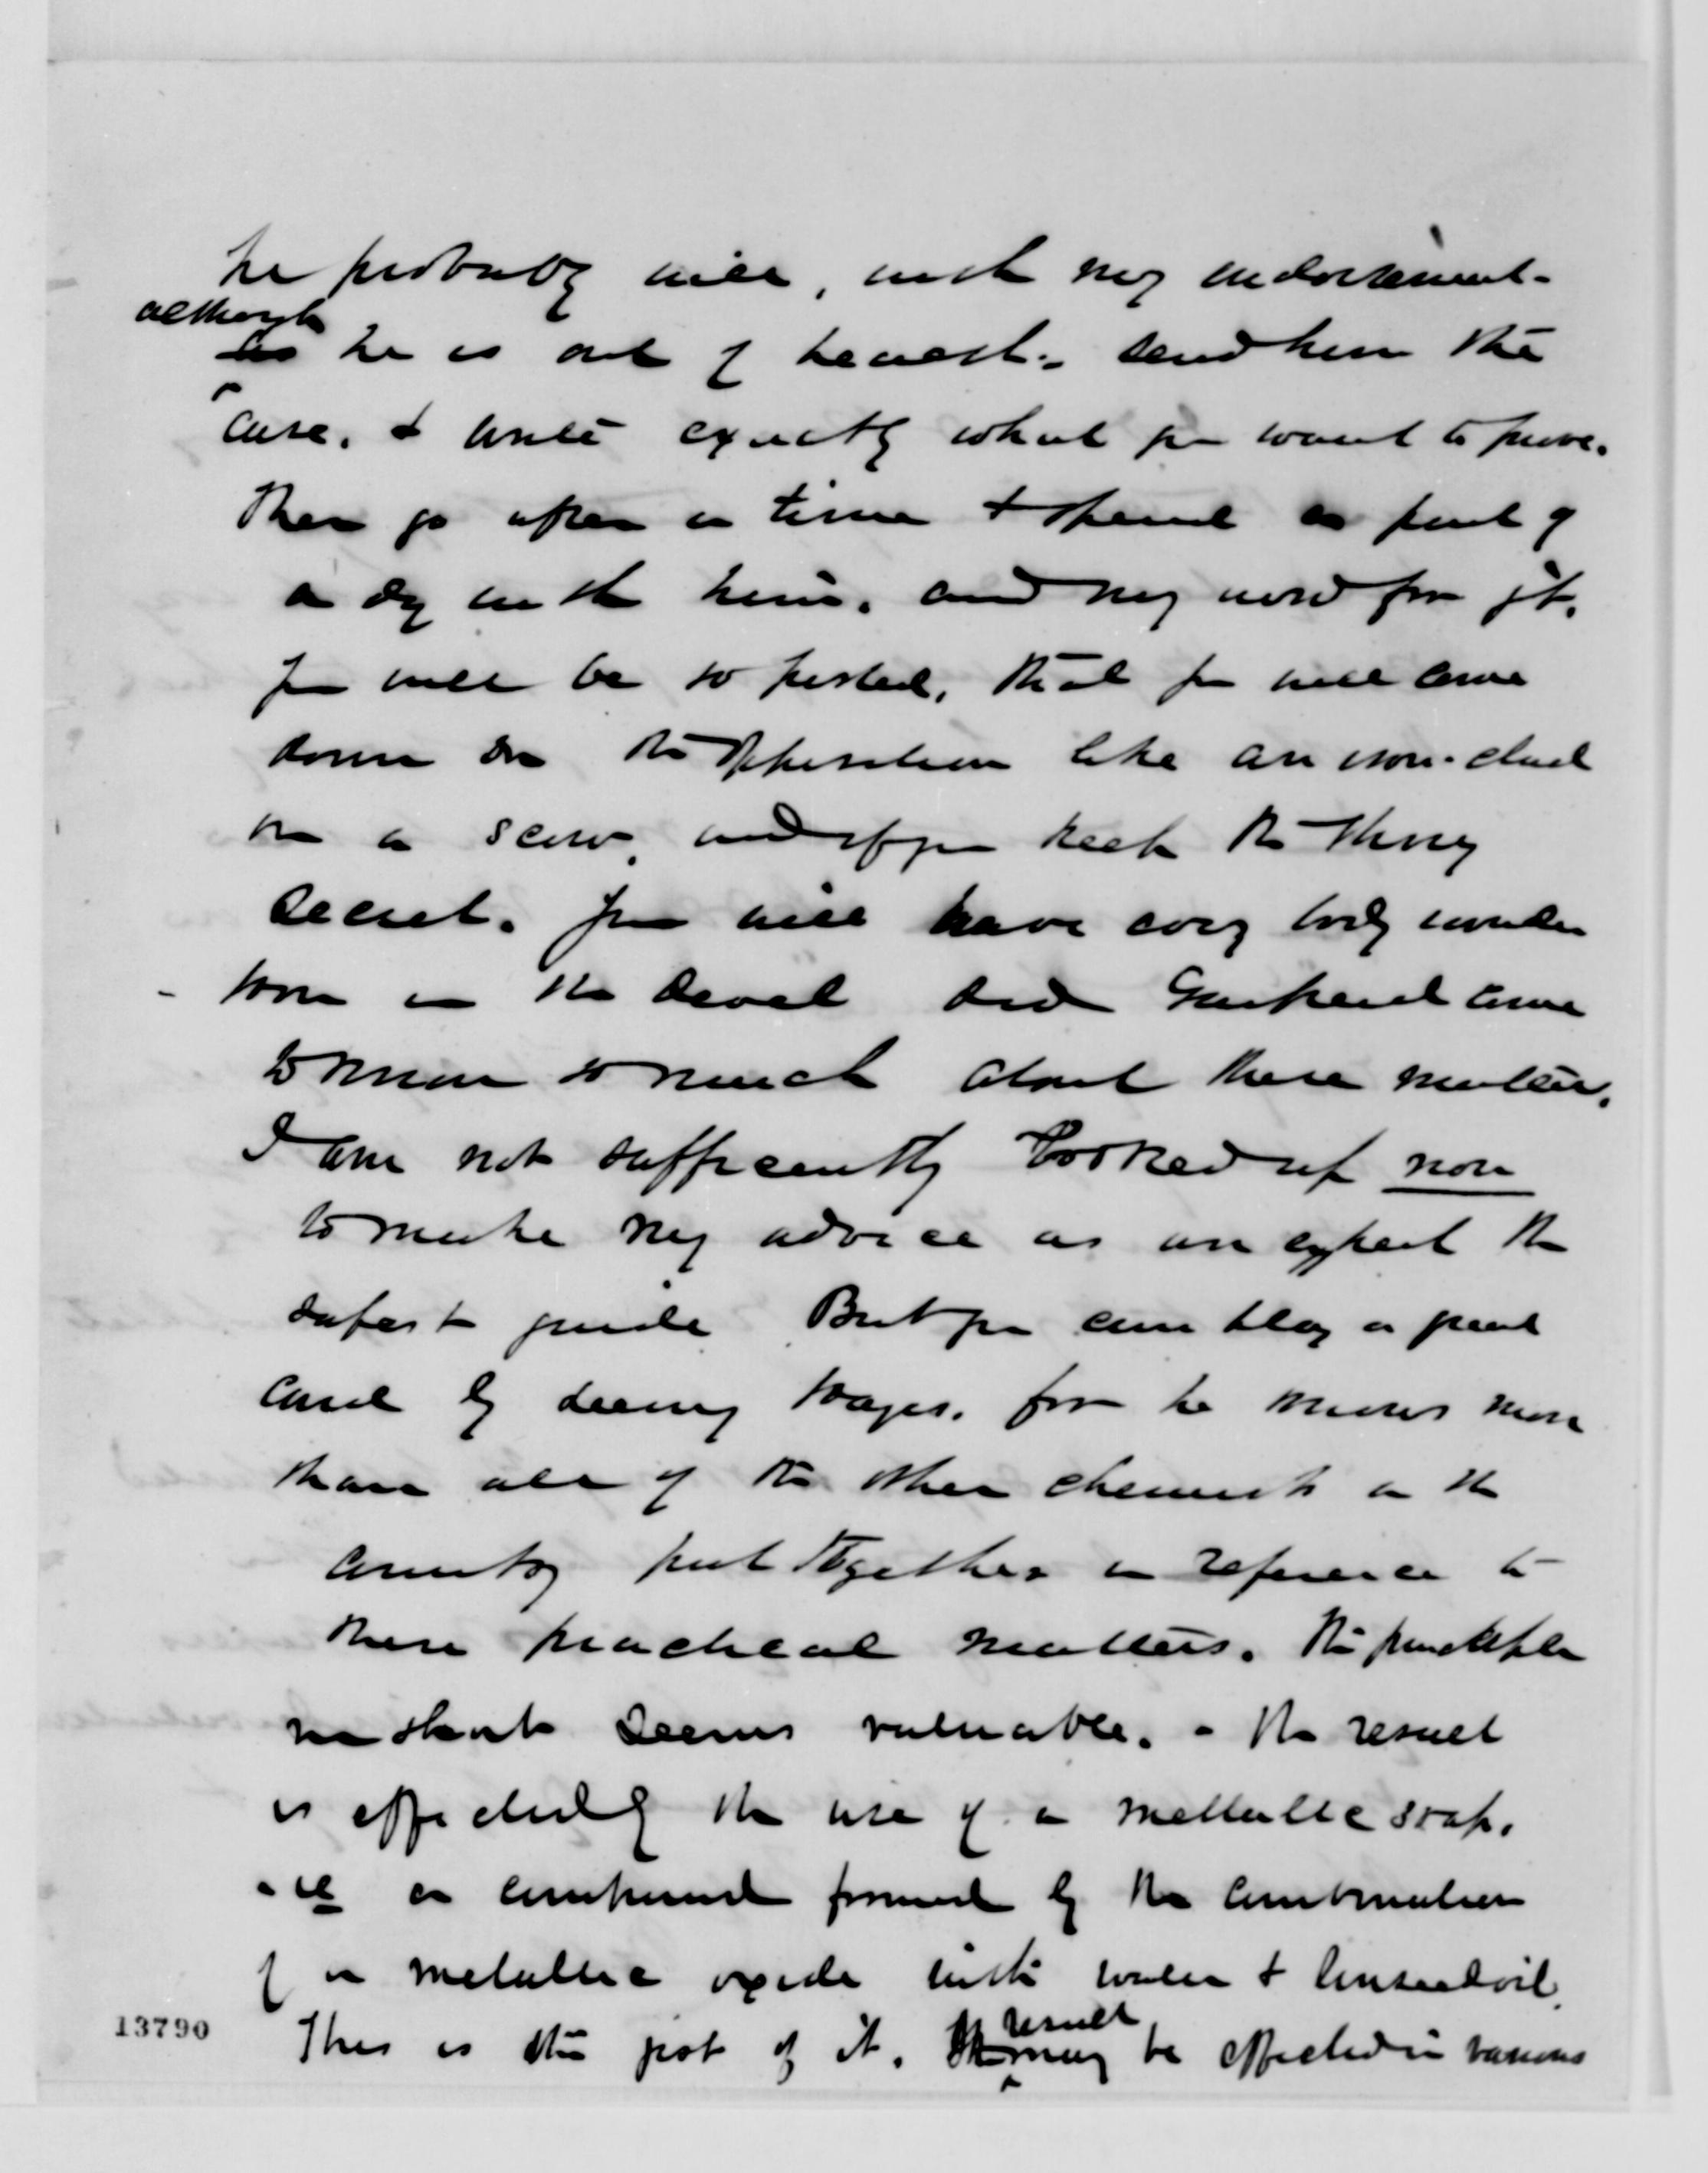 he probably will, with my endorsement -
although
as he is out of health - Send him the
case, & write exactly what you want to prove.
Then go after a time & spend a part of
a day with him, and my word for it,
you will be so posted, that you will come
down on the opposition like an iron-clad
on a scow, and if you keep the thing
secret, you will have every body wonder
how in the devil did come
to know so much about these matters.
I am not sufficiently booked up now
to make my advice as an expert the
safest guide But you can play a great
card by seeing , for he knows more
than all of the other chemists in the
country put together in reference to
these practical matters. The principle
seems valuable. - the result
is effected by the use of a mettallic soap.
- ie a compound formed by the combination
of a metallic oxide with water & linseed oil.
result
This is the gist of it. The may be effected in various
13790